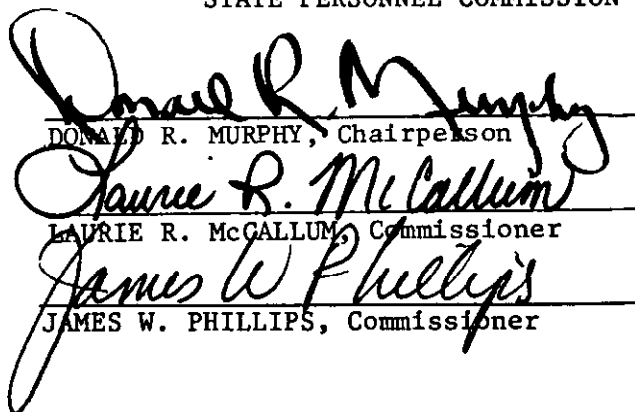 STATE PERSONNEL COMMISSION
Donald R. Murphy
DONALD R. MURPHY, Chairperson
Laurie R. McCallum
LAURIE R. McCALLUM, Commissioner
James W Phillips
JAMES W. PHILLIPS, Commissioner